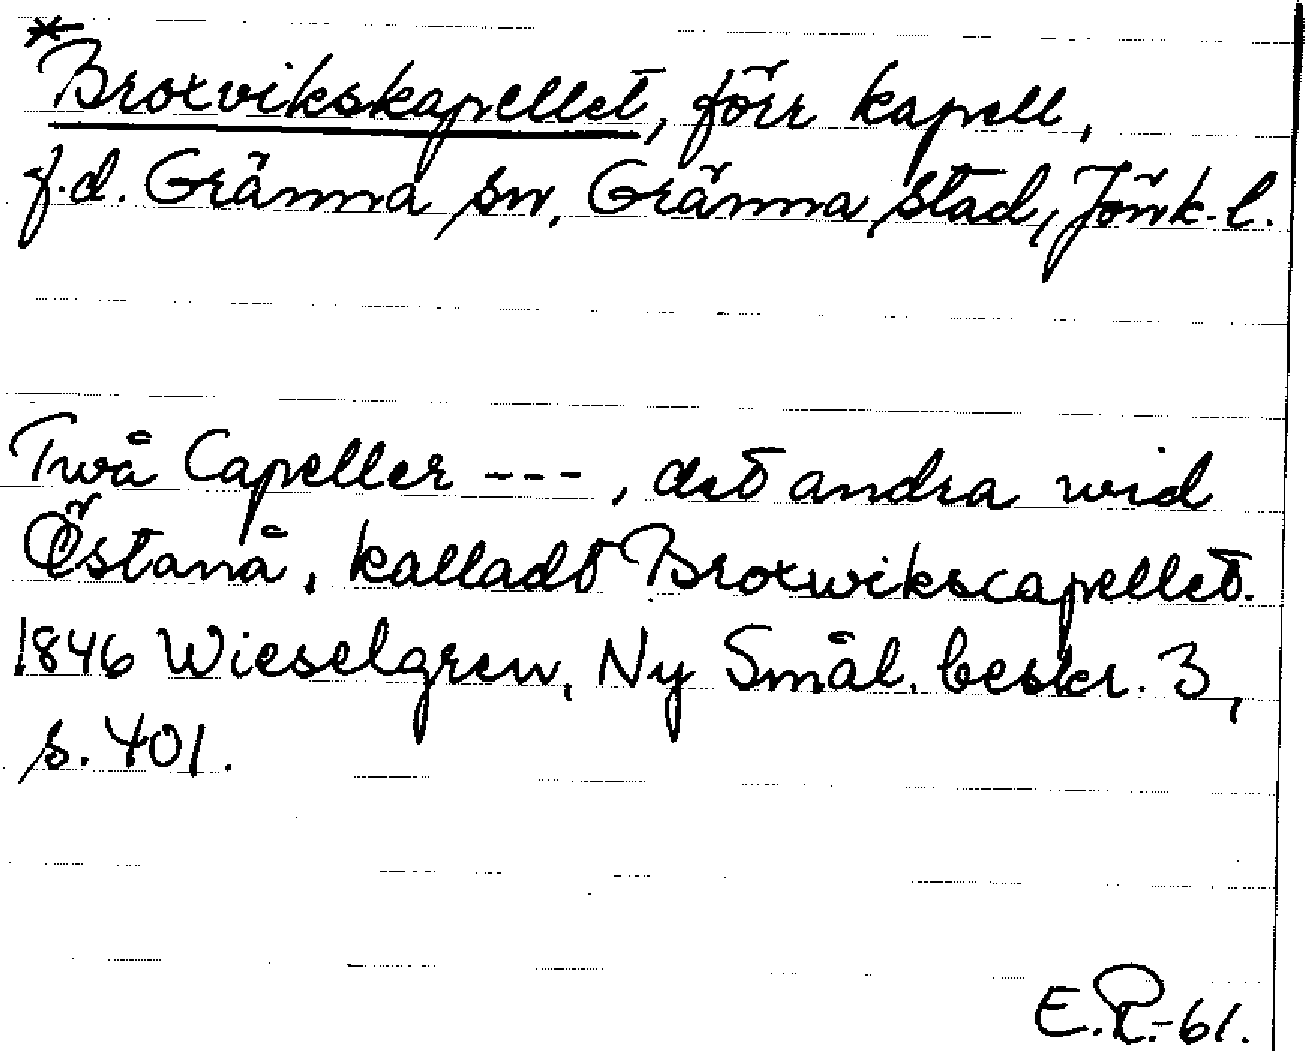 *Broxvikskapellet, förr kapell,
f.d. Gränna sn, Gränna stad, Jönk. l.
Twå Capeller ---, det andra wid
Östanå, kalladt Broxwikscapellet.
1846 Wieselgren, Ny Smål. beskr. 3,
s. 401.
E.R.-61.